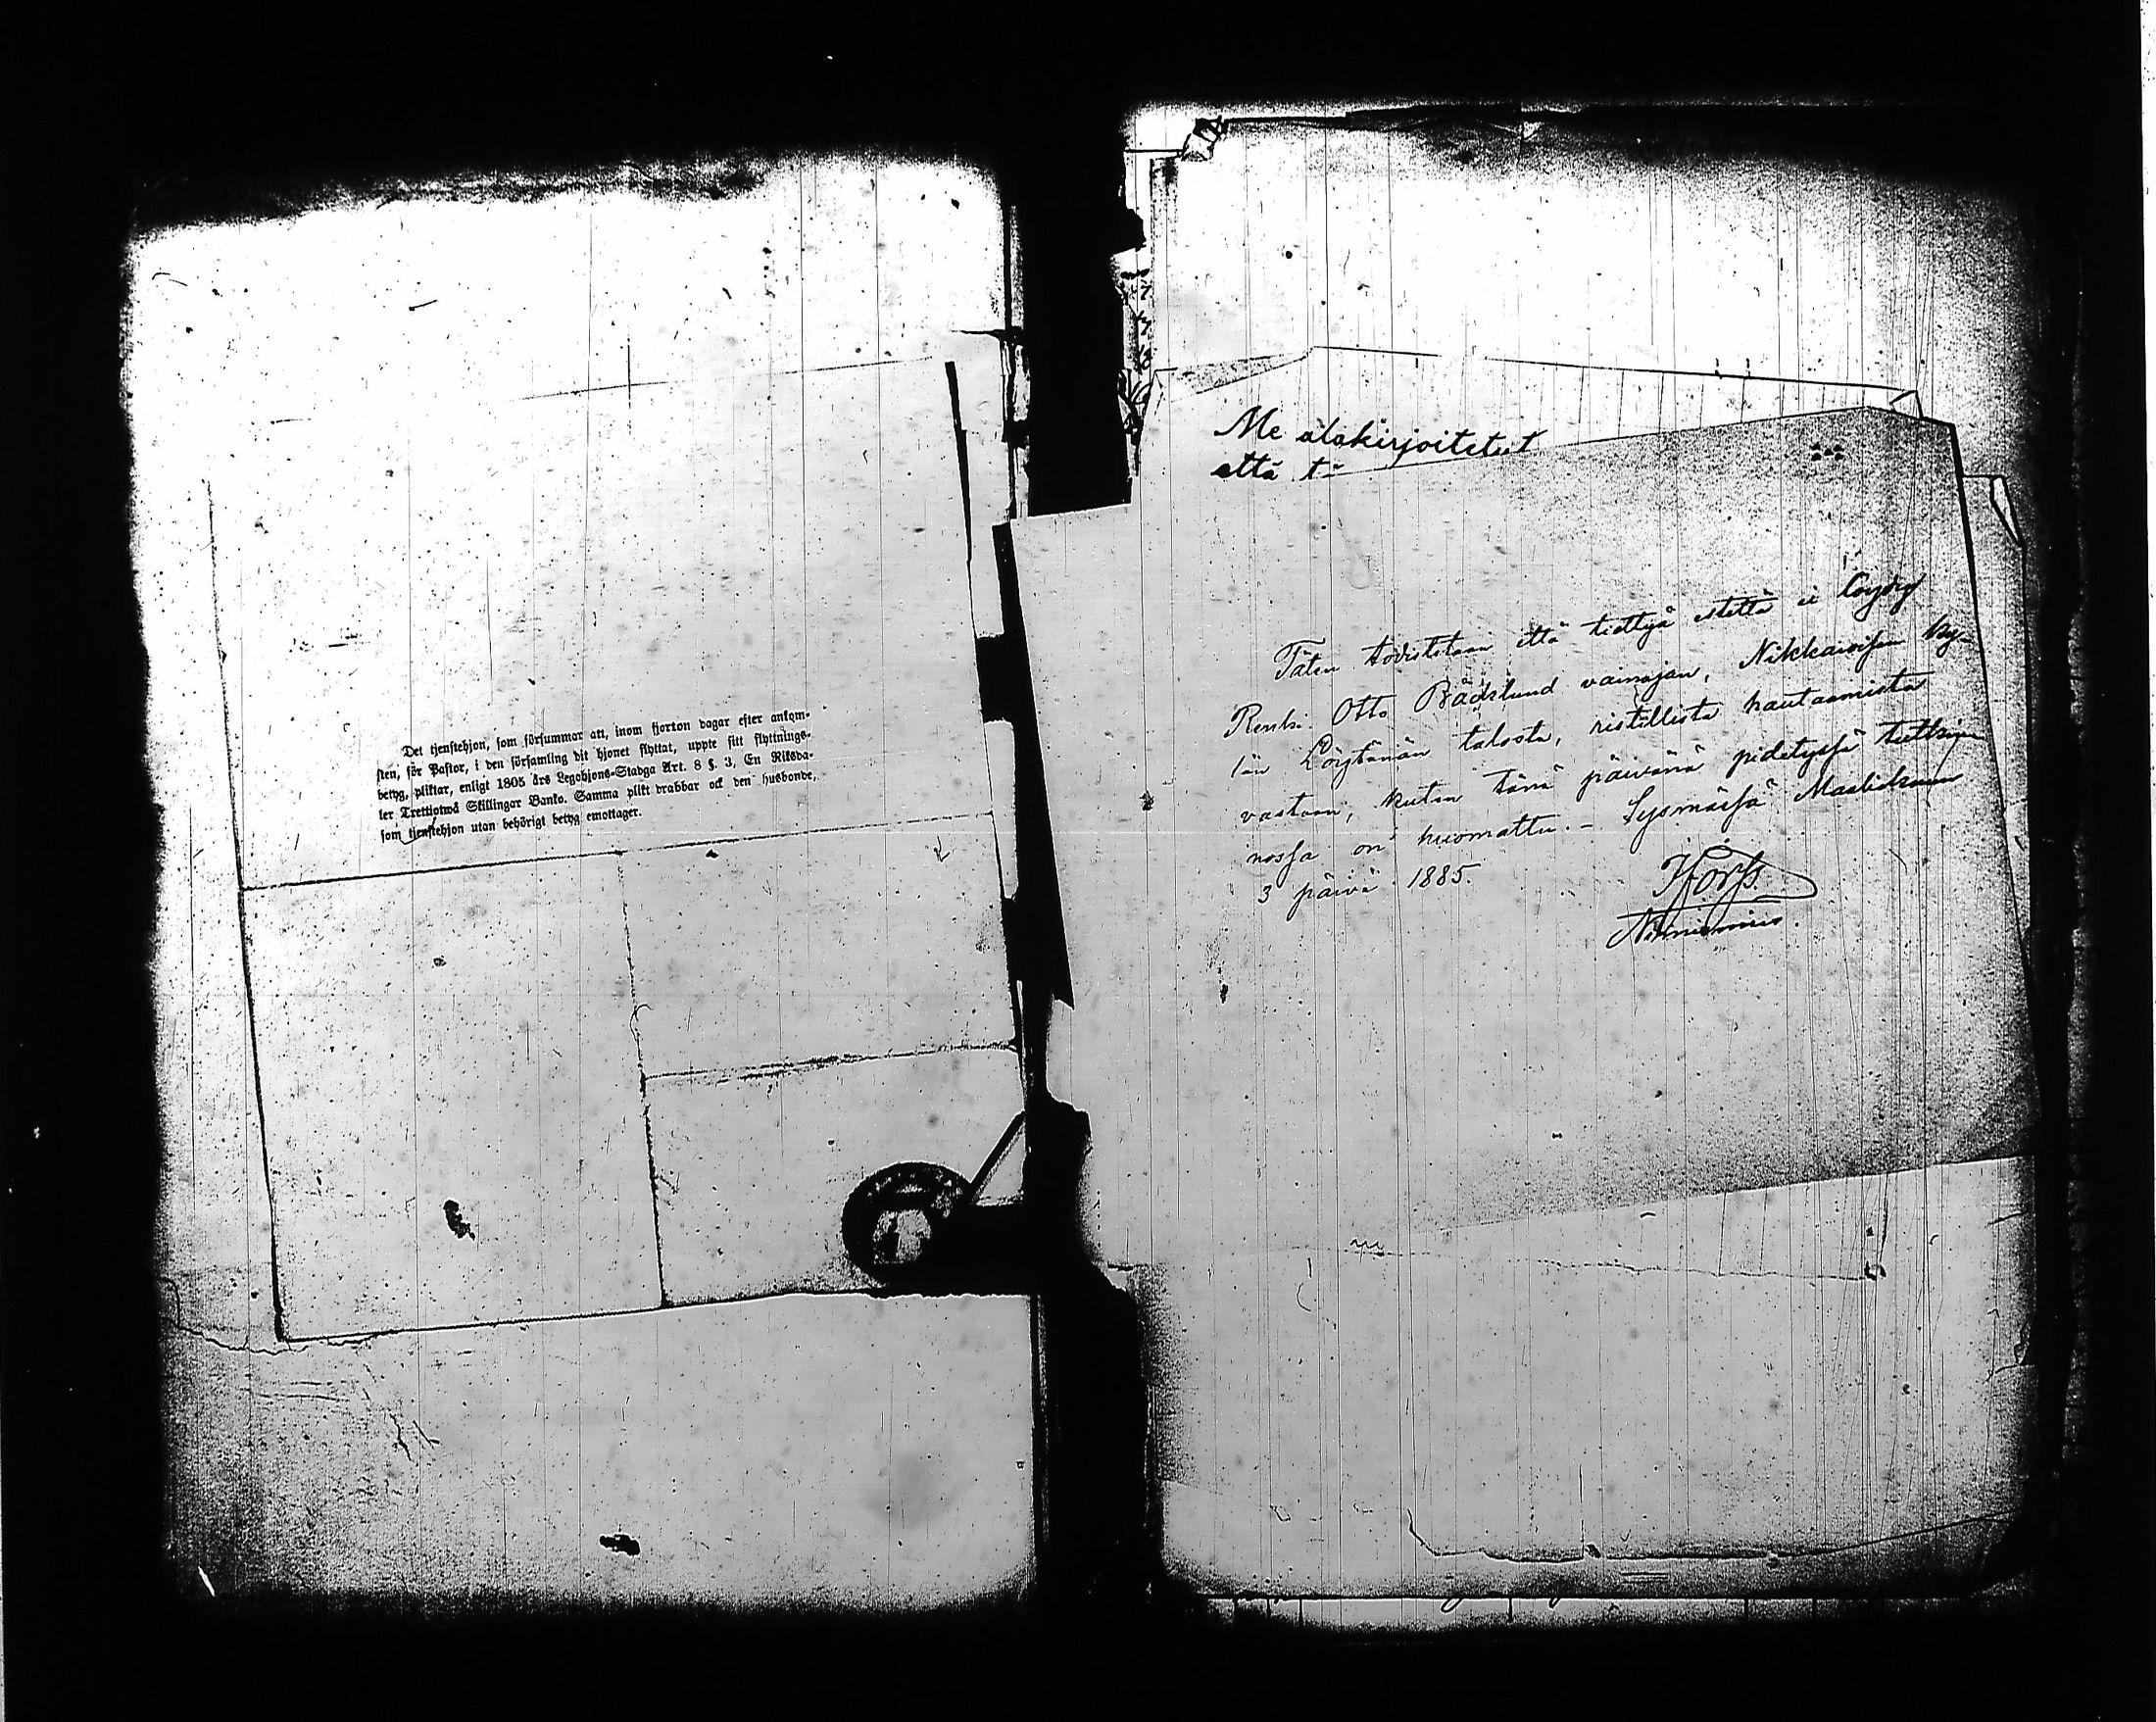 Det tjenstehjon, som försummar att, inom fjorton dagar efter ankom-
sten, för Pastor, i den församling dit hjonet flyttat, uppte sitt flyttnings-
betyg, pliktar, enligt 1805 års Legohjons-Stadga Art. 8 §. 3, En Riksda-
ler Trettiotwå Skillingar Banko. Samma plikt drabbar ock den husbonde,
som tjenstehjon utan behörigt betyg emottager.
Me alakirjoitetut
että
Täten todistetaan että tiettyä estettä ei
Renki Otto vainajan, Nikkaroisen ky-
län Löytänän talosta, ristillistä hautaamista
vastaan, kuten tänä päivänä pidetyssä
nossa on huomattu. – Sysmässä Maaliskuun
3 päivä 1885.
Nimismies.